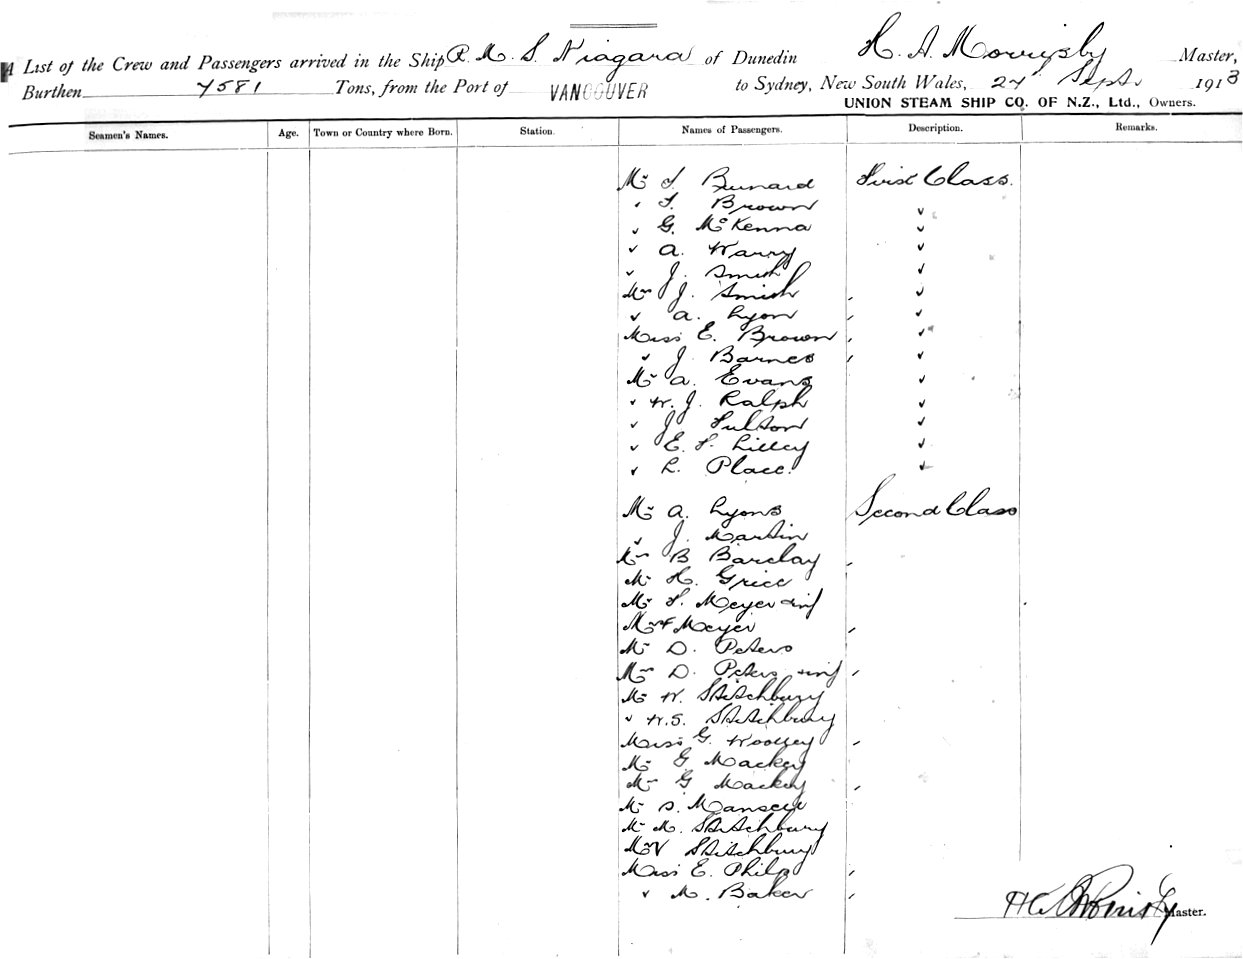 A List of the Crew and Passengers arrived in the Ship R. M. S. Niagara of Dunedin H. A. Morrisby Master,
Burthen 7581 Tons, from the Port of VANCOUVER to Sydney, New South Wales, 24 Sept. 1918
UNION STEAM SHIP CO. OF N.Z., Ltd., Owners.
Seamen's Names. Age. Town or Country where Born. Station. Names of Passengers. Description. Remarks.
Mr Bernard First Class.
" Brown "
" G. McKenna "
" A. Warry "
" J. Smith "
Mrs J. Smith "
" A. Lyon "
Miss E. Brown "
" J. Barnes "
Mr A. Evans "
" W. J. Ralph "
" J. Fulton "
" E. F. Lilley "
" L. Place. "
Mr A. Lyons Second Class
" J. Martin
Mrs B Barclay
Mr H. Grice
Mr F. Meyer & inf
Mrs F Meyer
Mr D. Peters
Mrs D. Peters & inf
Mr W. Stitchbury
" W. S. Stitchbury
Miss G. Woolley
Mr G Mackey
Mrs G Mackey
Mr S. Mansell
Mr M. Stitchbury
Mr V Stitchbury
Miss E. Philp
" M. Baker
Master.